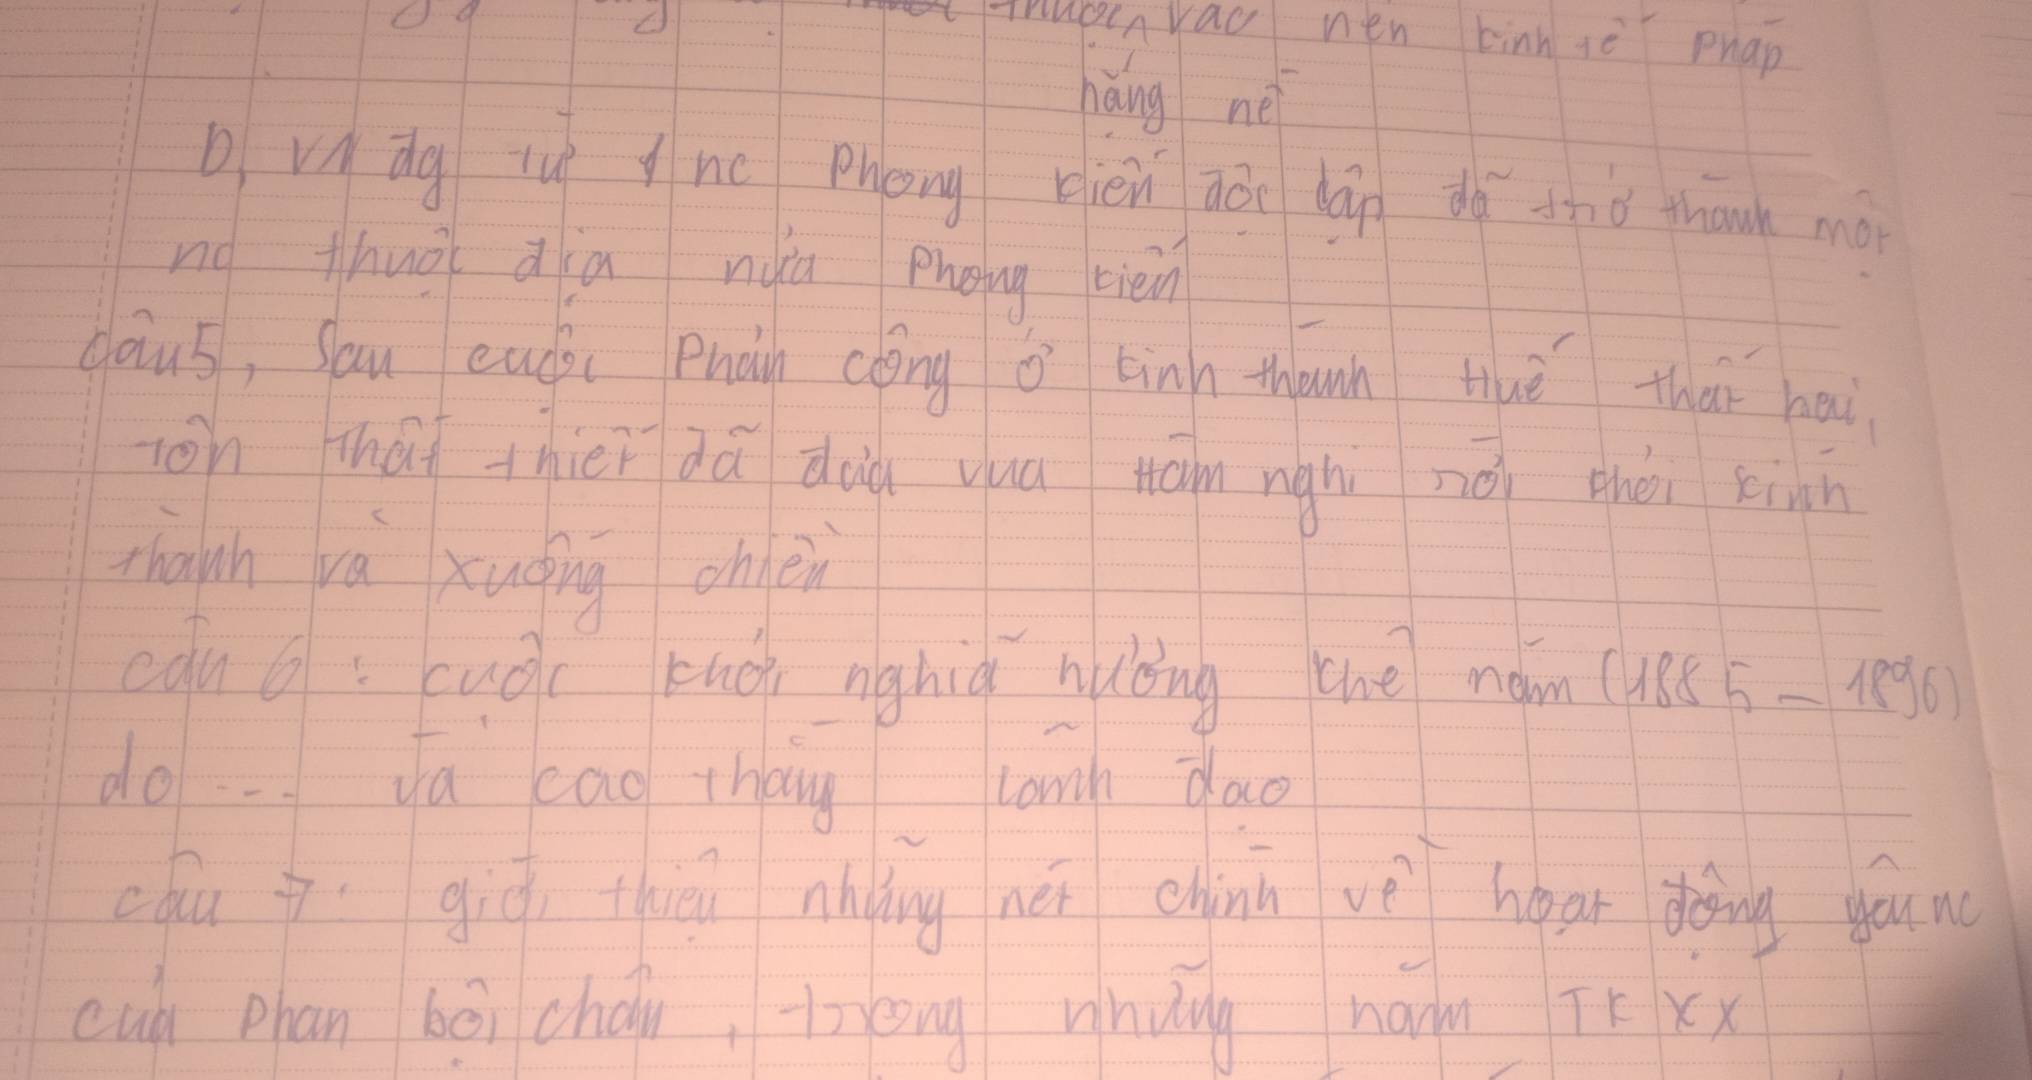 thuộc vào nền kinh tế Pháp
nặng nề
D, VN đg từ 1 nc Phong kiến độc lập đã trở thành một
nc thuộc địa nửa Phong kiến
câu 5, Sau cuộc Phản công ở kinh thành Huế thất bại,
tôn thất thiết đã đưa vua Hàm nghi rời khỏi kinh
thành và xuống chiến
câu 6 : cuộc khởi nghĩa hương khê năm (1885 - 1896)
do ... và cao thắng lãnh đạo
câu 7: giới thiệu những nét chính về hoạt động yêu nc
của phan bội châu, trong những năm TK XX